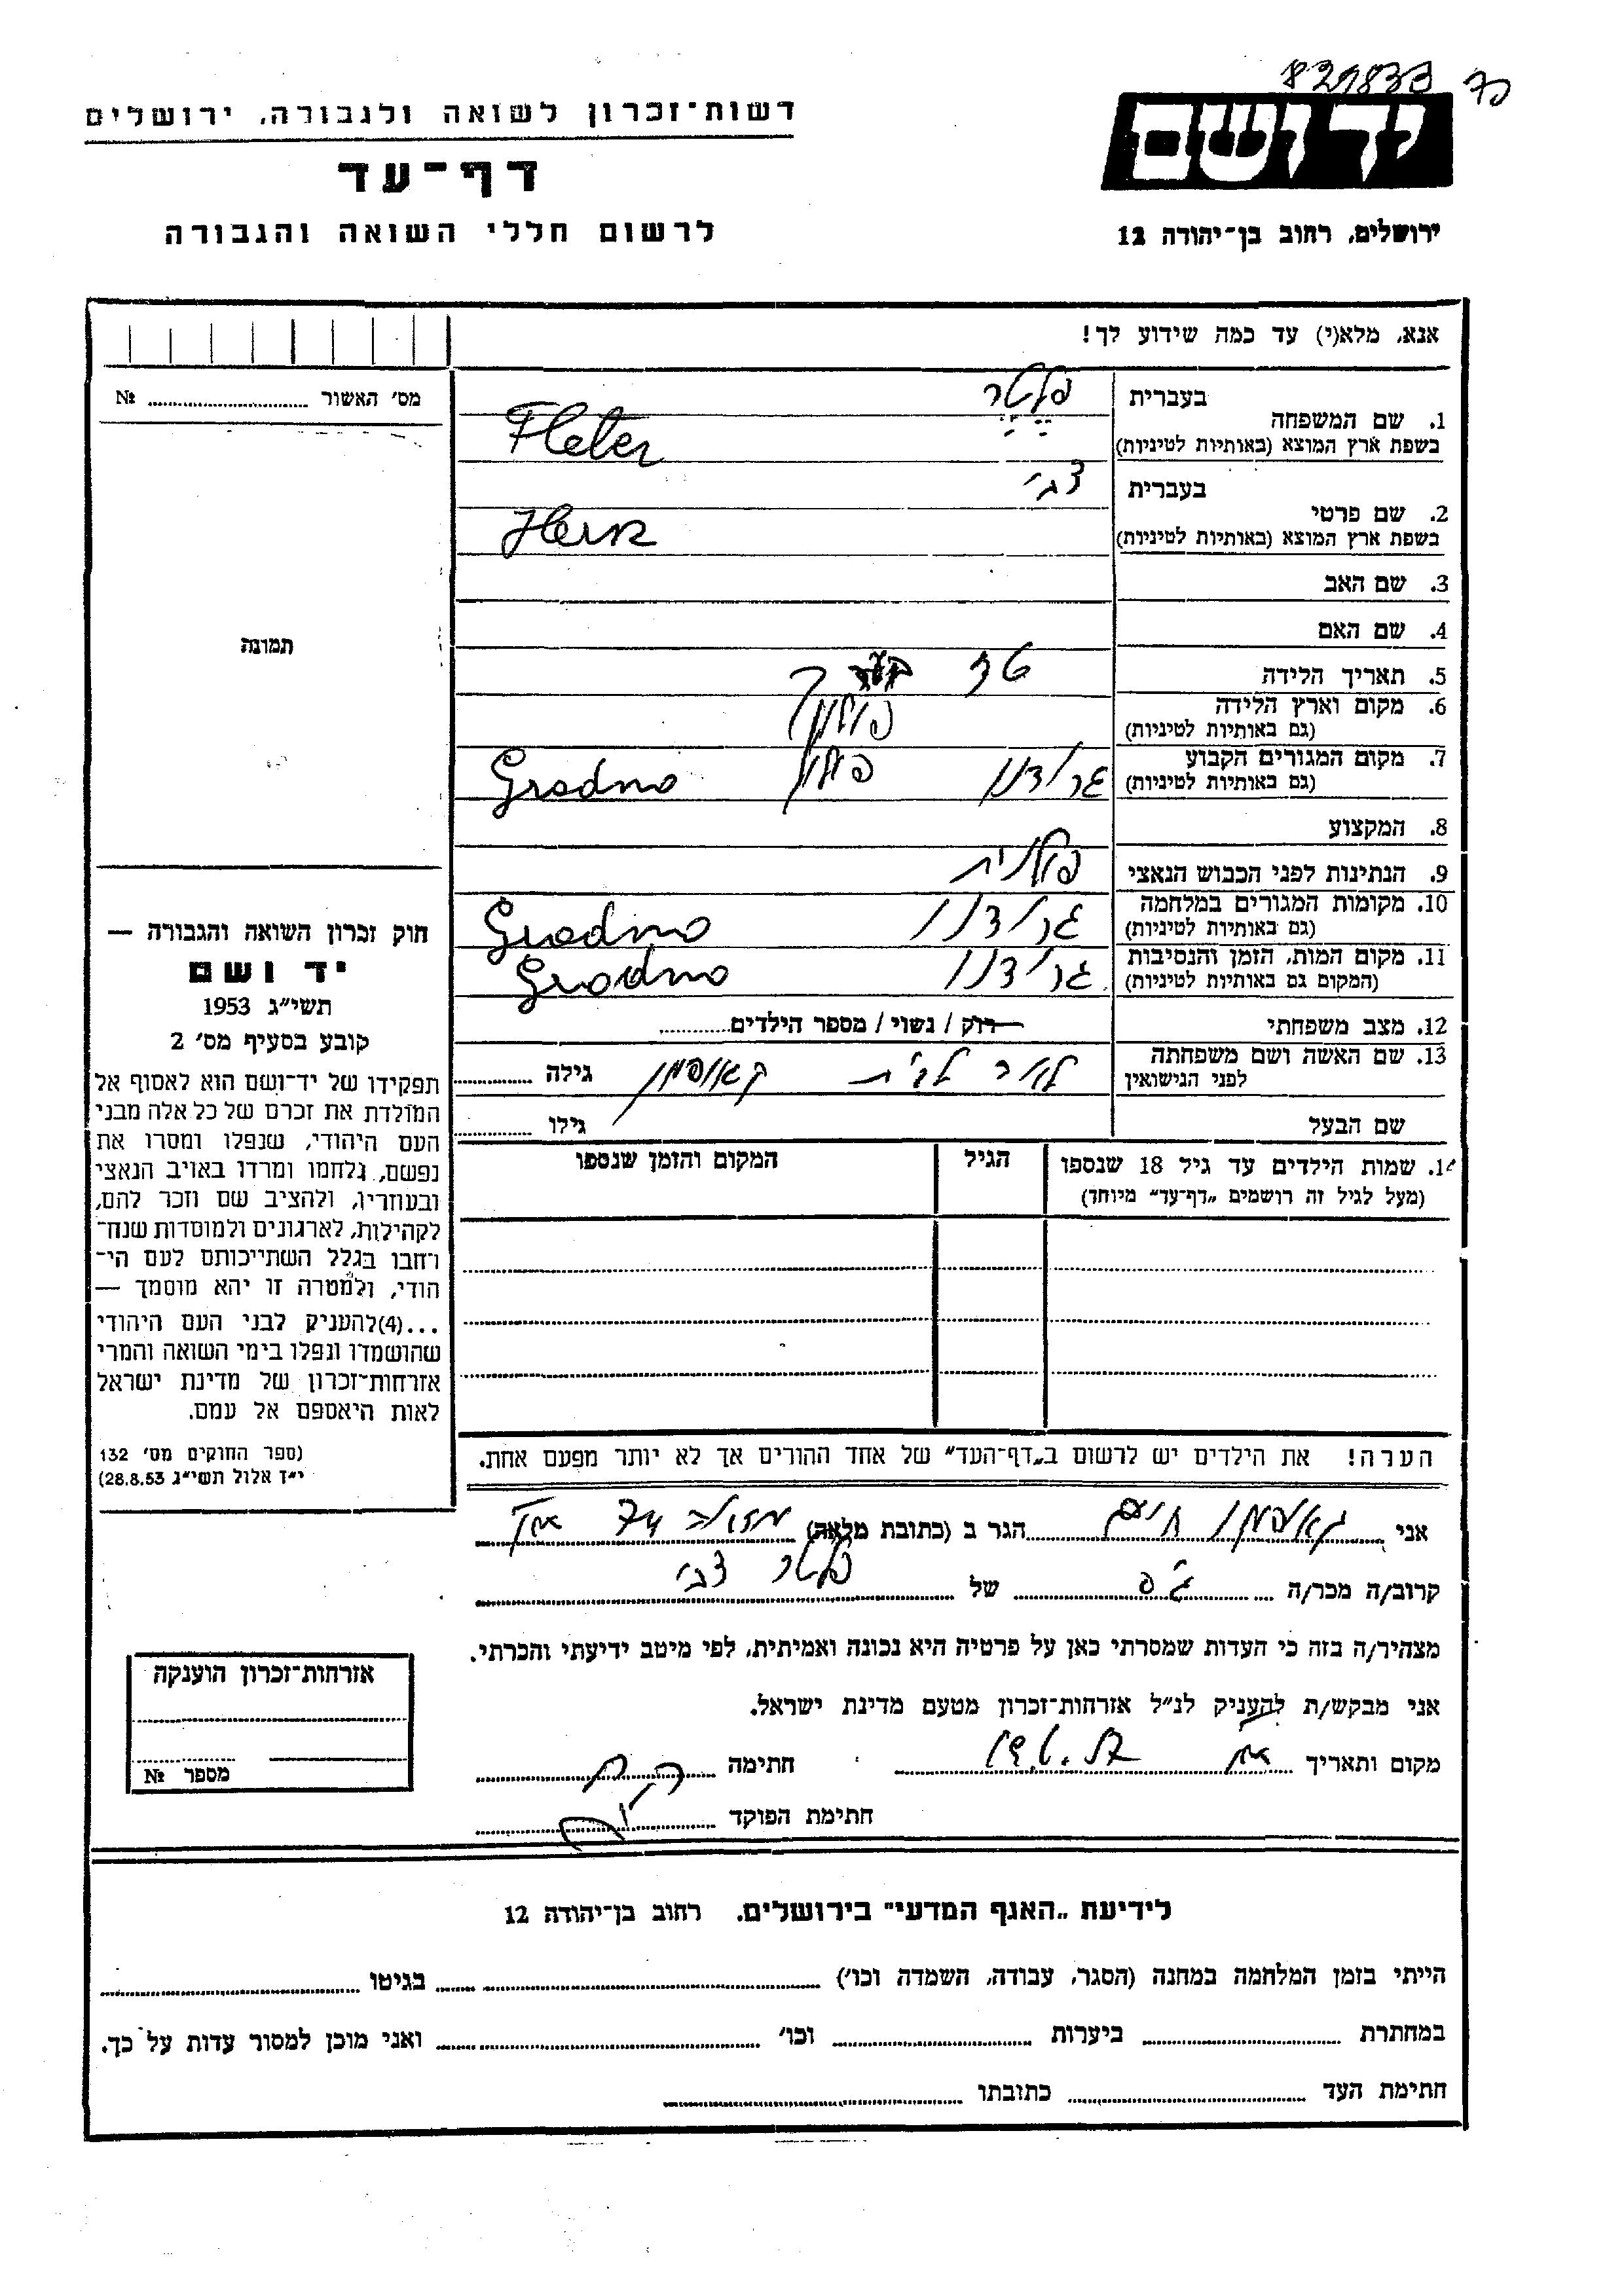 829833
יד ושם
ירושלים, רחוב בן־יהודה 12
רשות־זכרון לשואה ולגבורה, ירושלים
דף־עד
לרשום חללי השואה והגבורה
אנא, מלא(י) עד כמה שידוע לך!
מס׳ האשור ........ №
תמונה
בעברית פלטר
1. שם המשפחה
בשפת ארץ המוצא (באותיות לטיניות) Fleter
בעברית צבי
2. שם פרטי
בשפת ארץ המוצא (באותיות לטיניות) Hersz
3. שם האב
4. שם האם
5. תאריך הלידה
6. מקום וארץ הלידה פולין
(גם באותיות לטיניות)
7. מקום המגורים הקבוע גרודנו פולין Grodno
(גם באותיות לטיניות)
8. המקצוע
9. הנתינות לפני הכבוש הנאצי פולנית
10. מקומות המגורים במלחמה גרודנו Grodno
(גם באותיות לטיניות)
11. מקום המות, הזמן והנסיבות גרודנו Grodno
(המקום גם באותיות לטיניות)
12. מצב משפחתי רוק / נשוי / מספר הילדים........
13. שם האשה ושם משפחתה לבית קאופמן גילה ........
לפני הנישואין
שם הבעל גילו ........
14. שמות הילדים עד גיל 18 שנספו הגיל המקום והזמן שנספו
(מעל לגיל זה רושמים „דף־עד״ מיוחד)
הערה! את הילדים יש לרשום ב„דף־העד״ של אחד ההורים אך לא יותר מפעם אחת.
חוק זכרון השואה והגבורה —
יד ושם
תשי״ג 1953
קובע בסעיף מס׳ 2
תפקידו של יד־ושם הוא לאסוף אל
המולדת את זכרם של כל אלה מבני
העם היהודי, שנפלו ומסרו את
נפשם, נלחמו ומרדו באויב הנאצי
ובעוזריו, ולהציב שם וזכר להם,
לקהילות, לארגונים ולמוסדות שנח־
רחבו בגלל השתייכותם לעם הי־
הודי, ולמטרה זו יהא מוסמך —
...(4)להעניק לבני העם היהודי
שהושמדו ונפלו בימי השואה והמרי
אזרחות־זכרון של מדינת ישראל
לאות היאספם אל עמם.
(ספר החוקים מס׳ 132
י״ד אלול תשי״ג 28.8.53)
אני קאופמן חיים הגר ב (כתובת מלאה)
קרוב/ה מכר/ה גיס של פלטר צבי
מצהיר/ה בזה כי העדות שמסרתי כאן על פרטיה היא נכונה ואמיתית, לפי מיטב ידיעתי והכרתי.
אני מבקש/ת להעניק לנ״ל אזרחות־זכרון מטעם מדינת ישראל.
מקום ותאריך חתימה
חתימת הפוקד
אזרחות־זכרון הוענקה
מספר №
לידיעת „האגף המדעי״ בירושלים, רחוב בן־יהודה 12
הייתי בזמן המלחמה במחנה (הסגר, עבודה, השמדה וכו׳) ........ בגיטו ........
במחתרת ........ ביערות ........ וכו׳ ........ ואני מוכן למסור עדות על כך.
חתימת העד ........ כתובתו ........